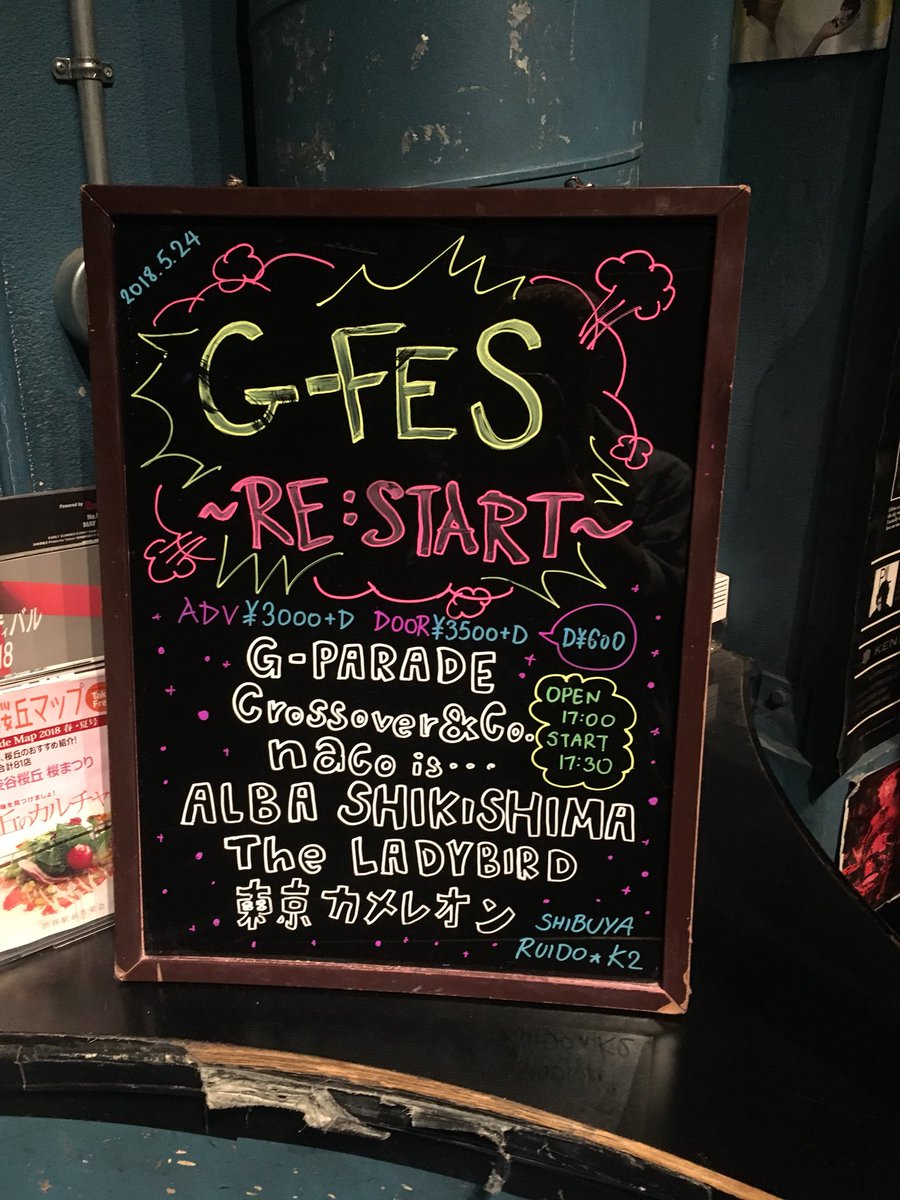 2018.5.24
G-FES
~RE:START~
ADV ¥3000+D DOOR ¥3500+D D¥600
G-PARADE
Crossover&Co.
naco is...
OPEN
17:00
START
17:30
ALBA SHIKISHIMA
The LADYBIRD
東京カメレオン
SHIBUYA
RUIDO★K2
Powered by
MAY
バル
18
丘マップ
de Map 2018 春・夏号
、桜丘のおすすめ紹介!
合計81店
渋谷桜丘 桜まつり
丘のカルチャ
KEN